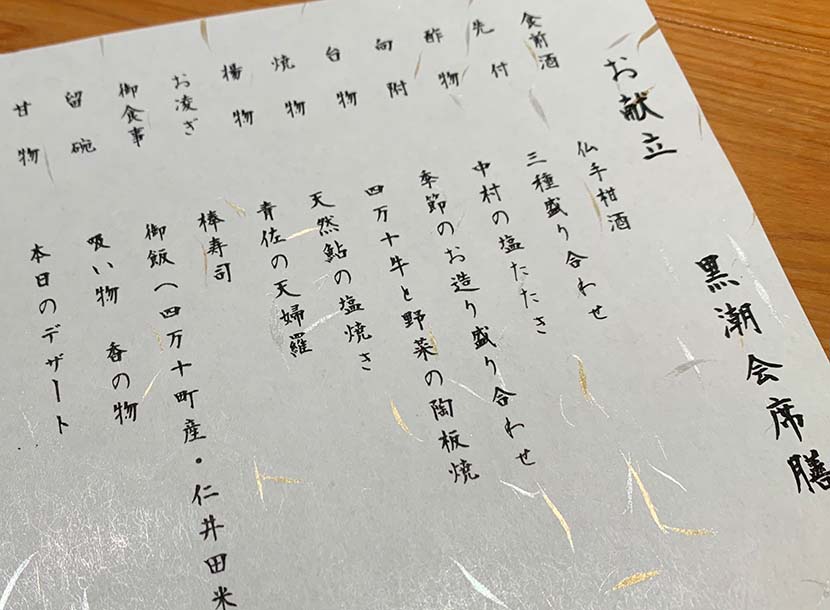 お献立 黒潮会席膳
食前酒 仏手柑酒
先付 三種盛り合わせ
酢物 中村の塩たたき
向附 季節のお造り盛り合わせ
台物 四万十牛と野菜の陶板焼
焼物 天然鮎の塩焼き
揚物 青佐の天婦羅
お凌ぎ 棒寿司
御食事 御飯へ四万十町産・仁井田米
留碗 吸い物 香の物
甘物 本日のデザート